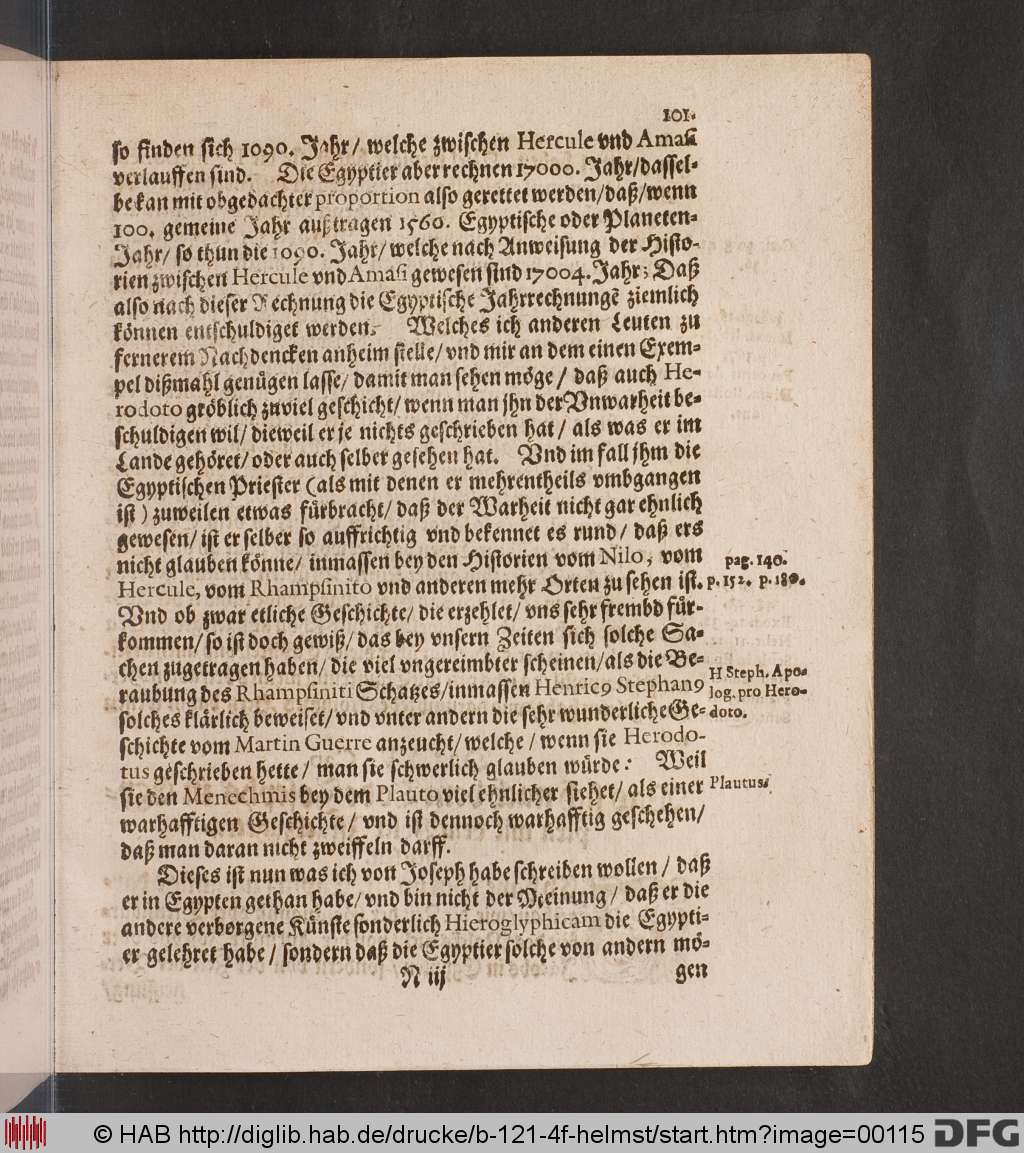 101.
so finden sich 1090. Jahr/ welche zwischen Hercule vnd Amasi
verlauffen sind. Die Egyptier aber rechnen 17000. Jahr/dassel-
be kan mit obgedachter proportion also gerettet werden/daß/wenn
100. gemeine Jahr außtragen 1560. Egyptische oder Planeten-
Jahr/ so thun die 1090. Jahr/ welche nach Anweisung der Histo-
rien zwischen Hercule vnd Amasi gewesen sind 17004. Jahr; Daß
also nach dieser Rechnung die Egyptische Jahrrechnungē ziemlich
können entschuldiget werden. Welches ich anderen Leuten zu
fernerem Nachdencken anheim stelle/ vnd mir an dem einen Exem-
pel dißmahl genügen lasse/ damit man sehen möge/ daß auch He-
rodoto gröblich zuviel geschicht/ wenn man jhn der Vnwarheit be-
schuldigen wil/ dieweil er je nichts geschrieben hat/ als was er im
Lande gehöret/ oder auch selber gesehen hat. Vnd im fall jhm die
Egyptischen Priester (als mit denen er mehrentheils vmbgangen
ist) zuweilen etwas fürbracht/ daß der Warheit nicht gar ehnlich
gewesen/ ist er selber so auffrichtig vnd bekennet es rund/ daß ers
nicht glauben könne/ inmassen bey den Historien vom Nilo, vom
pag. 140.
Hercule, vom Rhampsinito vnd anderen mehr Orten zu sehen ist.
p. 152. p. 180.
Vnd ob zwar etliche Geschichte/ die erzehlet/ vns sehr frembd für-
kommen/ so ist doch gewiß/ das bey vnsern Zeiten sich solche Sa-
chen zugetragen haben/ die viel vngereimbter scheinen/als die Be-
raubung des Rhampsiniti Schatzes/inmassen Henricꝰ Stephanꝰ
solches klärlich beweiset/ vnd vnter andern die sehr wunderliche Ge-
H Steph. Apo-
log. pro Hero-
doto.
schichte vom Martin Guerre anzeucht/ welche/ wenn sie Herodo-
tus geschrieben hette/ man sie schwerlich glauben würde: Weil
sie den Menechmis bey dem Plauto viel ehnlicher siehet/ als einer
Plautus.
warhafftigen Geschichte/ vnd ist dennoch warhafftig geschehen/
daß man daran nicht zweiffeln darff.
Dieses ist nun was ich von Joseph habe schreiben wollen/ daß
er in Egypten gethan habe/ vnd bin nicht der Meinung/ daß er die
andere verborgene Künste sonderlich Hieroglyphicam die Egypti-
er gelehret habe/ sondern daß die Egyptier solche von andern mö-
N iij
gen
© HAB http://diglib.hab.de/drucke/b-121-4f-helmst/start.htm?image=00115
DFG